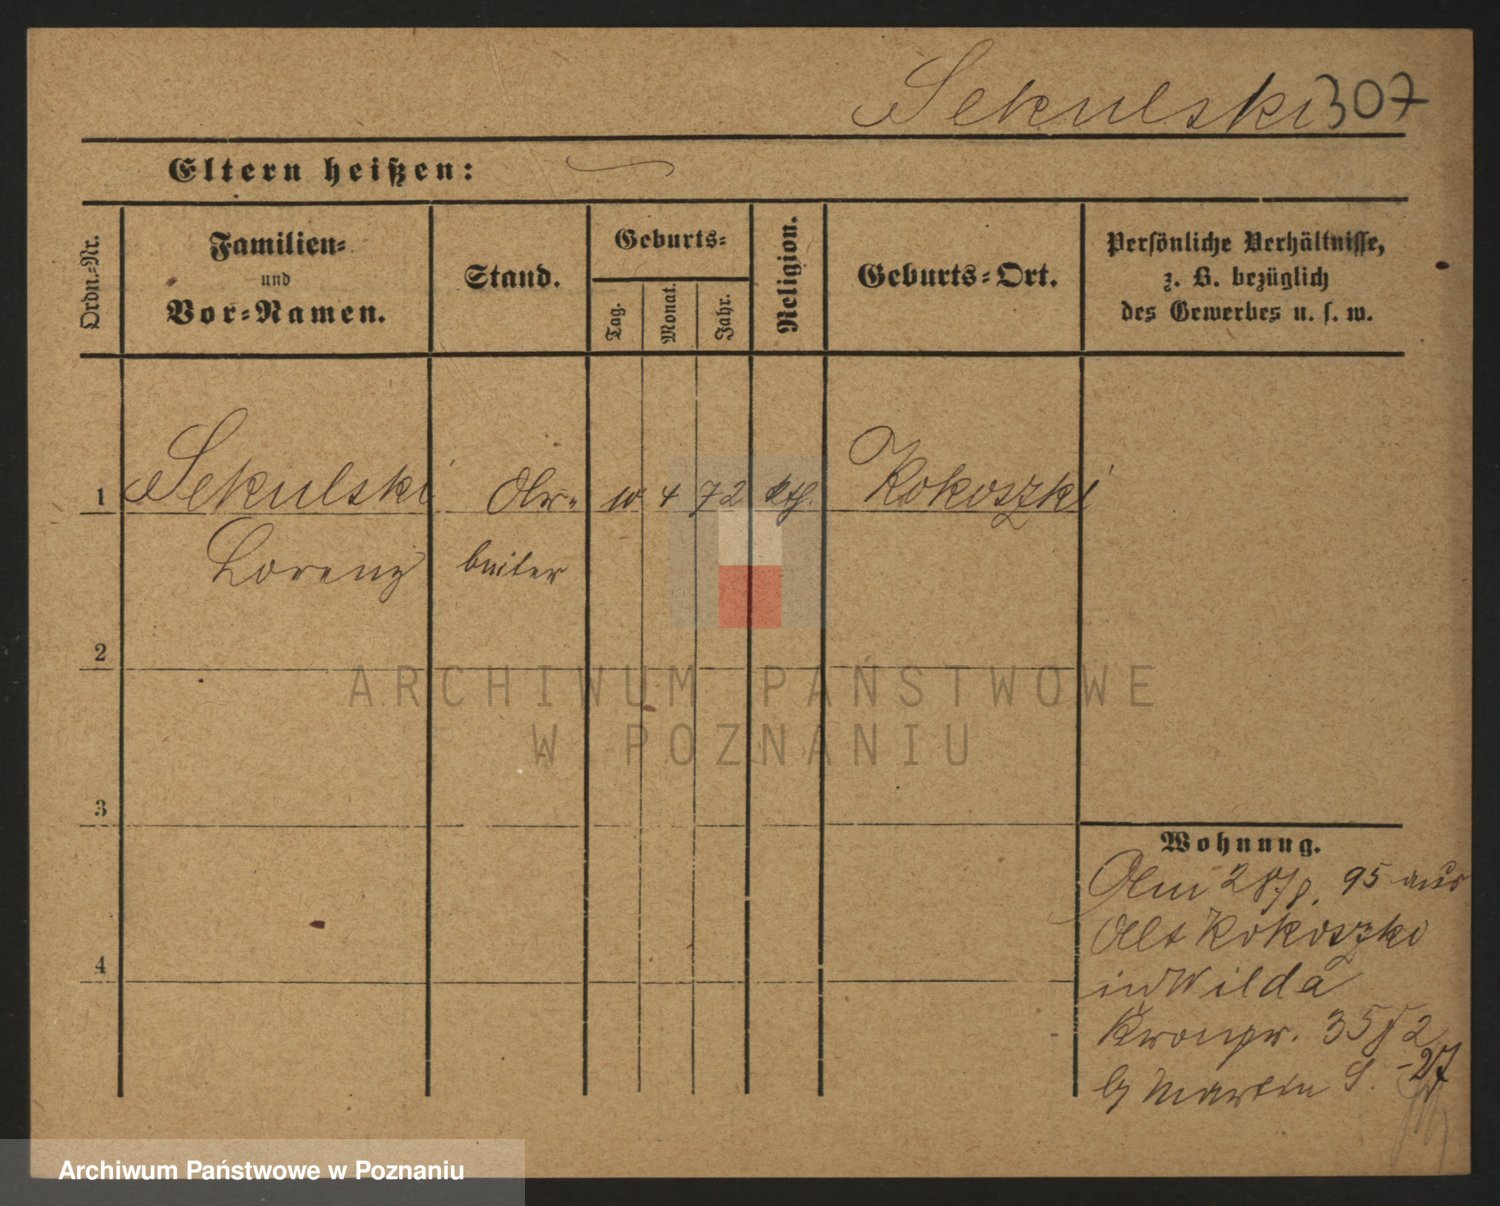 Sekulski 307
Eltern heißen:
Ordn.-Nr.
Familien-
und
Vor-Namen.
Stand.
Geburts-
Tag.
Monat.
Jahr.
Religion.
Geburts-Ort.
Persönliche Verhältnisse,
z. B. bezüglich
des Gewerbes u. s. w.
1 Sekulski Ar- 10 4 72 kth. Kokoszki
Lorenz beiter
2
ARCHIWUM PAŃSTWOWE
W POZNANIU
3
Wohnung.
Am 28/8. 95 aus
Alt Kokoszki
4
in Wilda
Kronpr. 35
Martin S.
Archiwum Państwowe w Poznaniu